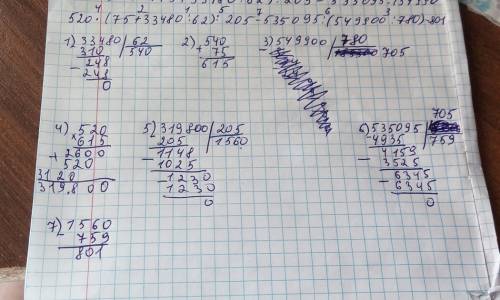 520·(75+33480:62):205-535095:(549800:780)=801
1) 33480 | 62
310 540
- 248
248
0
2) 540
+ 75
615
3) 549900 | 780
705
4) 520
× 615
+ 2600
520
3120
319.800
5) 319800 | 205
205 1560
- 1148
1025
- 1230
1230
0
705
6) 535095
- 4935 759
- 4159
3525
- 6345
- 6345
0
7) 1560
- 759
801